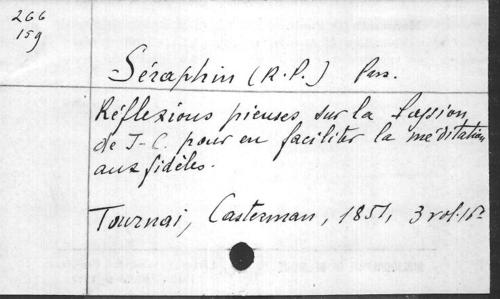 266
159
Séraphin (R.P.) Pass.
Réflexions pieuses sur la Passion
de J-C. pour en faciliter la méditation
aux fidèles.
Tournai, Casterman, 1851, 3 vol. 16º